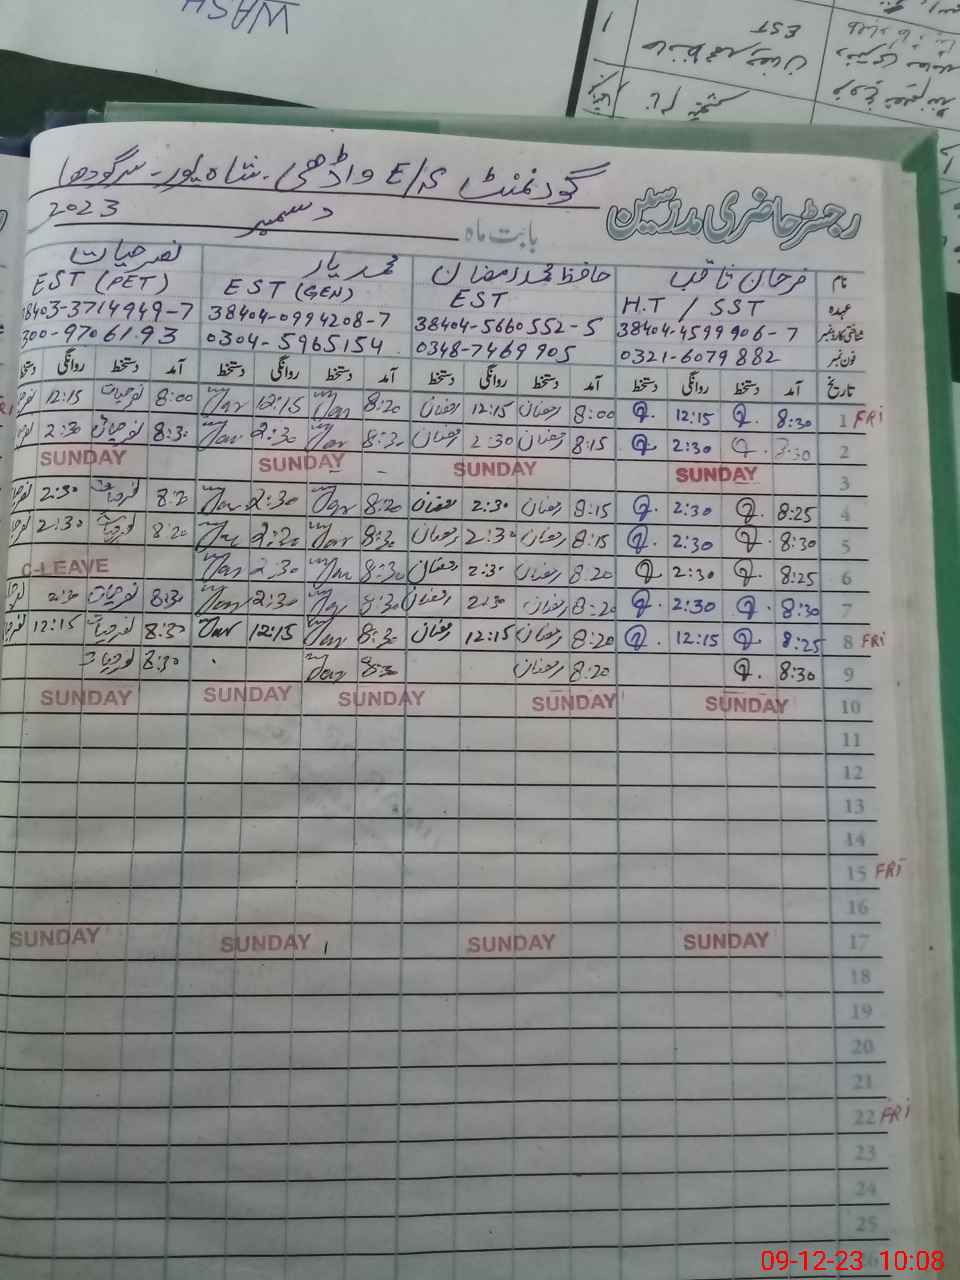 WASH
گورنمنٹ E/S واڈھی۔ شاہ پور۔ سرگودھا
رجسٹر حاضری مدرسین
بابت ماہ دسمبر 2023
نام فرحان ثاقب حافظ محمد رمضان محمد یار نصر حیات
عہدہ H.T / SST EST EST (GEN) EST (PET)
شناختی کارڈ نمبر 38404-4599906-7 38404-5660552-5 38404-0994208-7 38403-3714949-7
فون نمبر 0321-6079882 0348-7469905 0304-5965154 300-9706193
تاریخ آمد دستخط روانگی دستخط آمد دستخط روانگی دستخط آمد دستخط روانگی دستخط آمد دستخط روانگی دستخط
FRI 1 8:30 12:15 8:00 رمضان 12:15 رمضان 8:20 12:15 8:00 نصر حیات 12:15
2 8:30 2:30 8:15 رمضان 2:30 رمضان 8:30 2:30 8:30 نصر حیات 2:30
3 SUNDAY SUNDAY SUNDAY SUNDAY
4 8:25 2:30 8:15 رمضان 2:30 رمضان 8:20 2:30 نصر حیات 2:30
5 8:30 2:30 8:15 رمضان 2:30 رمضان 8:30 8:20 نصر حیات 2:30
6 8:25 2:30 8:20 رمضان 2:30 رمضان 8:30 2:30 C-LEAVE
7 8:30 2:30 8:20 رمضان 2:30 رمضان 8:30 2:30 8:30 نصر حیات 2:30
FRI 8 8:25 12:15 8:20 رمضان 12:15 رمضان 8:30 12:15 8:30 نصر حیات 12:15
9 8:30 8:20 رمضان 8:30 نصر حیات
10 SUNDAY SUNDAY SUNDAY SUNDAY SUNDAY
11
12
13
14
15 FRI
16
17 SUNDAY SUNDAY SUNDAY SUNDAY
18
19
20
21
22 FRI
23
24
25
09-12-23 10:08